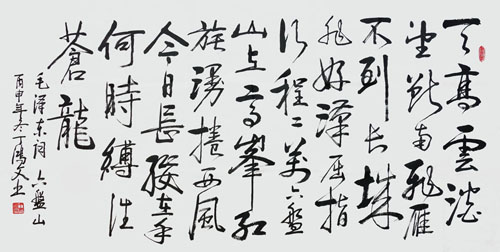 天高雲淡
望断南飛雁
不到长城
非好漢屈指
行程二万六盤
山上高峯红
旗漫捲西風
今日長缨在手
何時縛住
蒼龍
毛澤东词六盤山
丙申年冬丁鸿文书